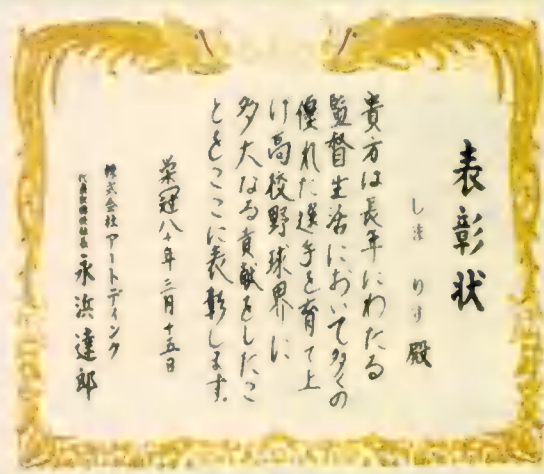 表彰状
しま りす 殿
貴方は長年にわたる
監督生活において多くの
優れた選手を育て上
げ高校野球界に
多大なる貢献をしたこ
とをここに表彰します。
栄冠八十年三月十五日
株式会社アートディンク
代表取締役社長 永浜達郎